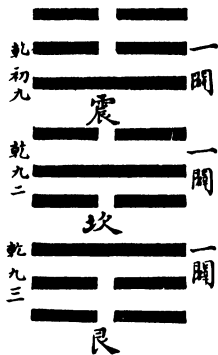 乾初九
一
震
乾九二
一
坎
乾九三
一
艮